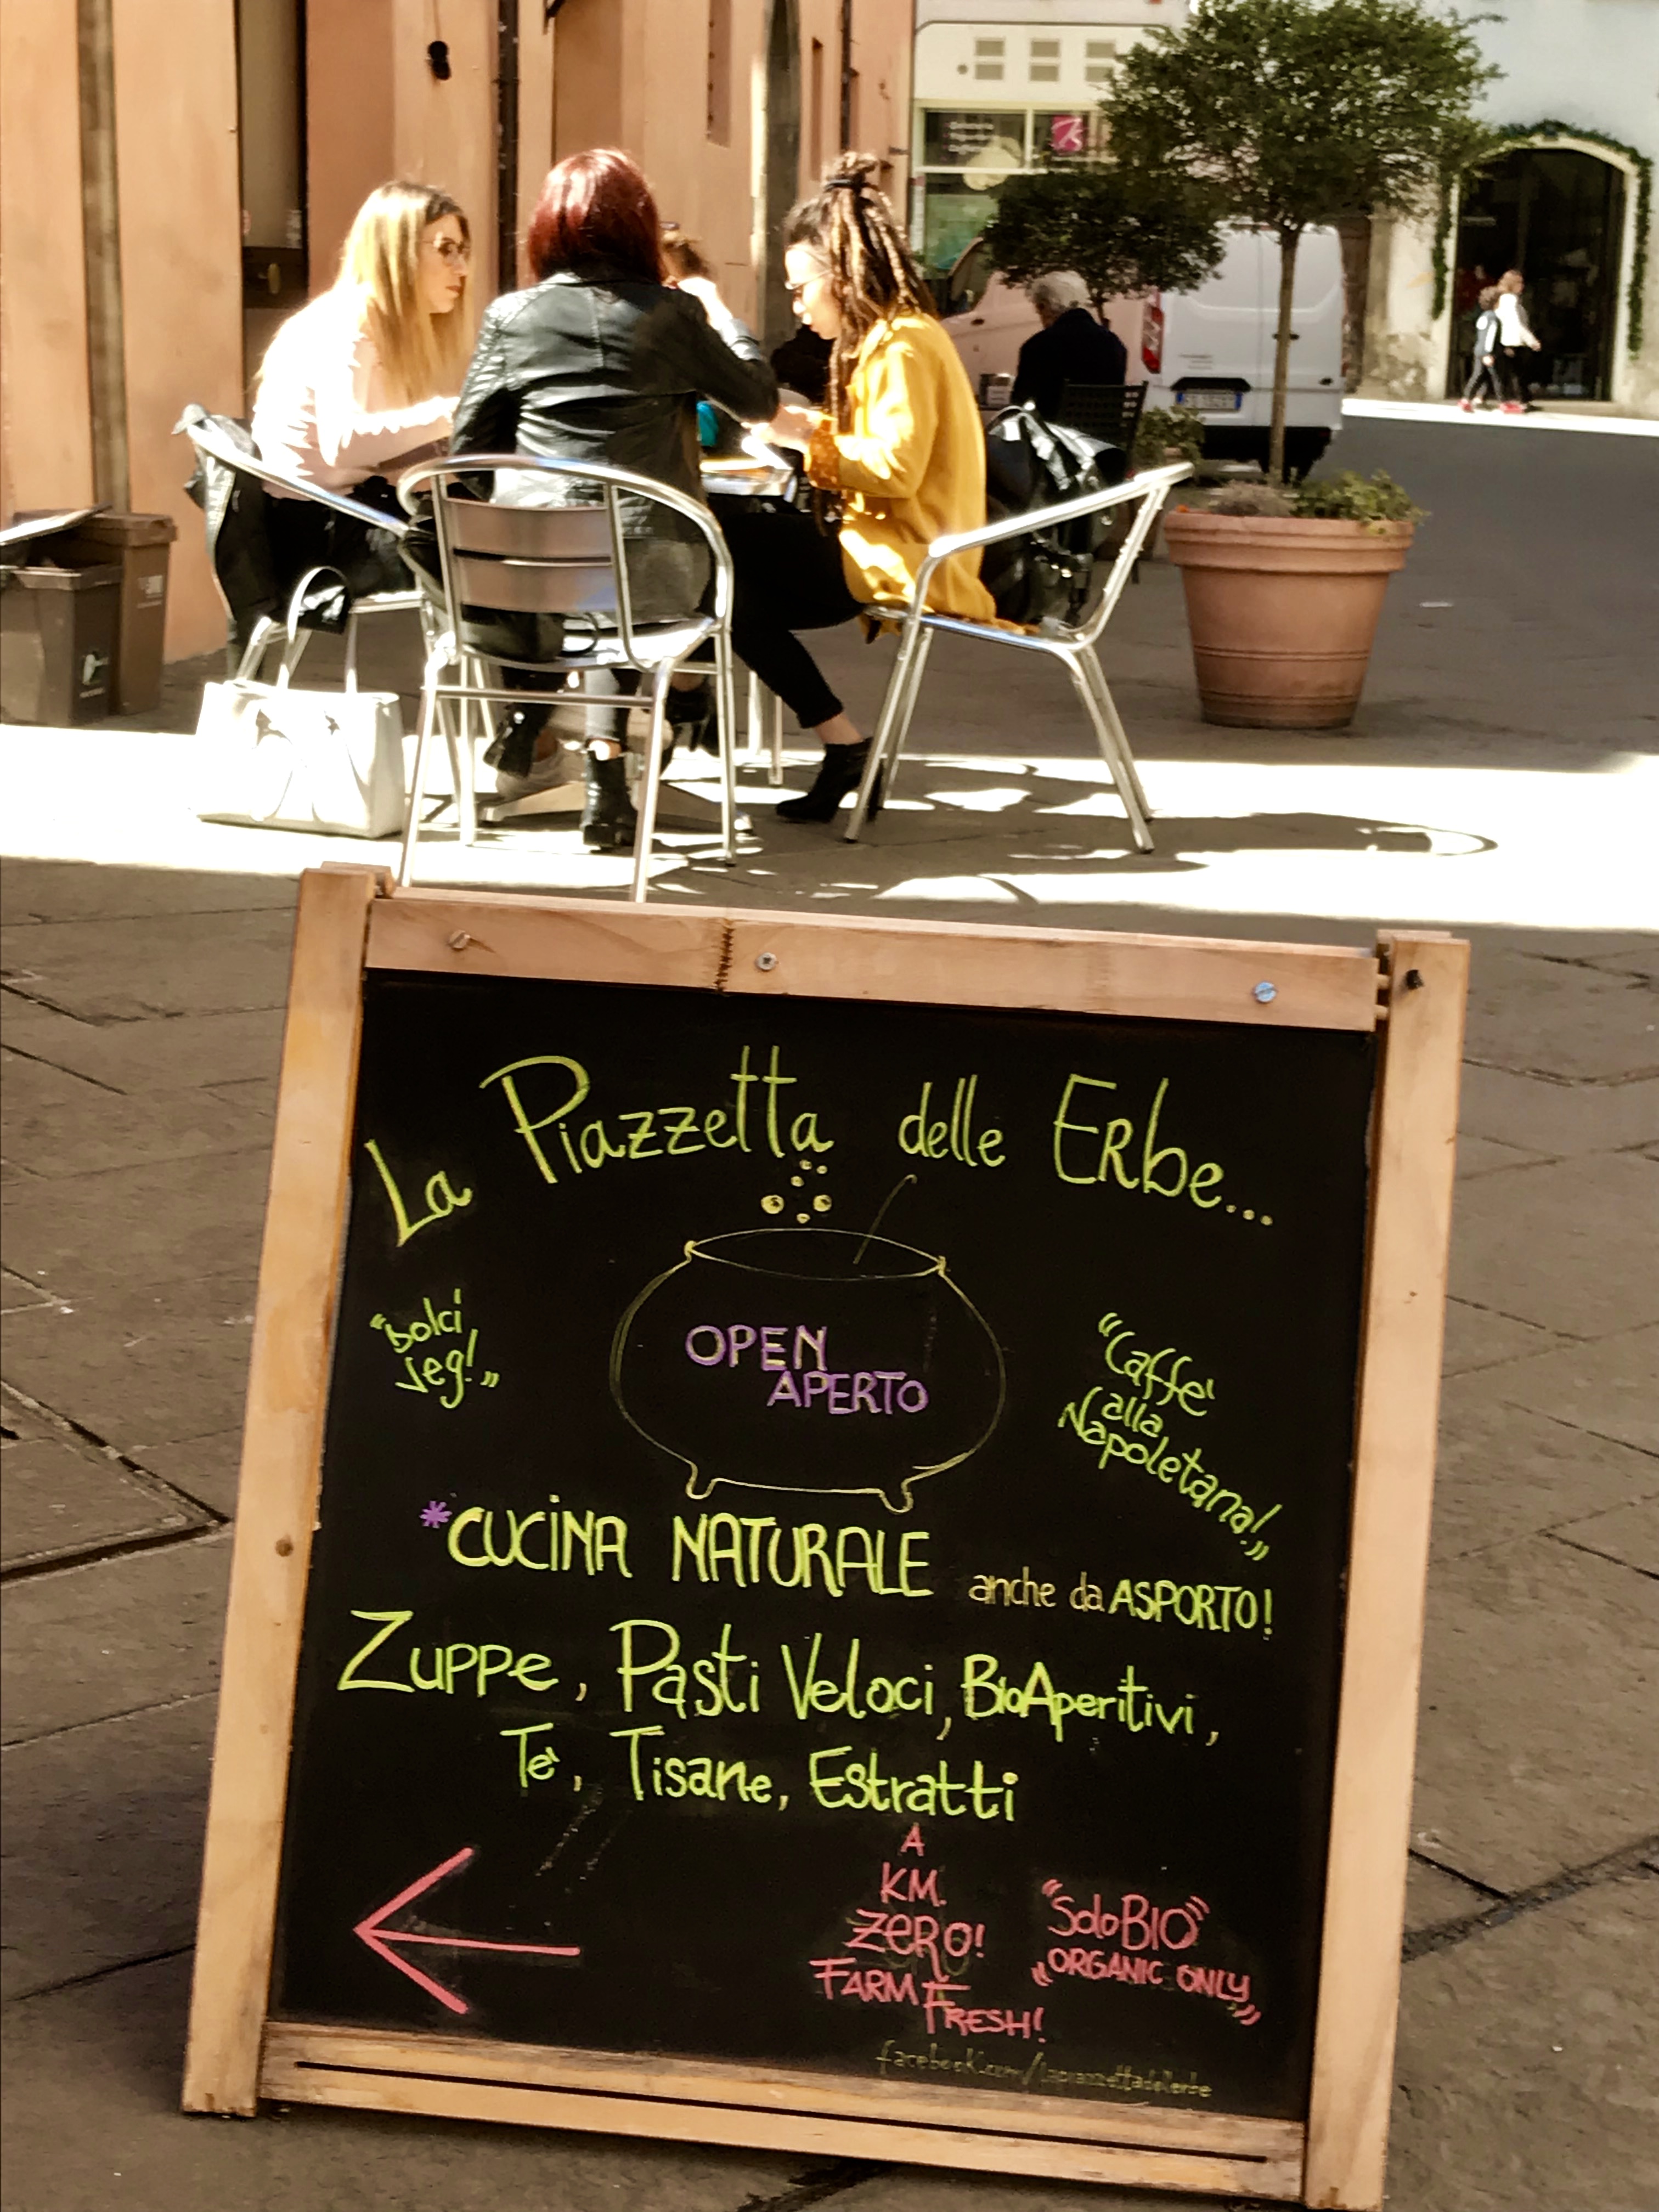 La Piazzetta delle Erbe...
"Dolci
Veg!"
OPEN
APERTO
"Caffe'
alla
Napoletana!"
*CUCINA NATURALE anche da ASPORTO!
Zuppe, Pasti Veloci, BioAperitivi,
Te', Tisane, Estratti
A
KM.
ZERO!
FARM
FRESH!
"Solo BIO"
"ORGANIC ONLY"
facebook.com/lapiazzettadellerbe